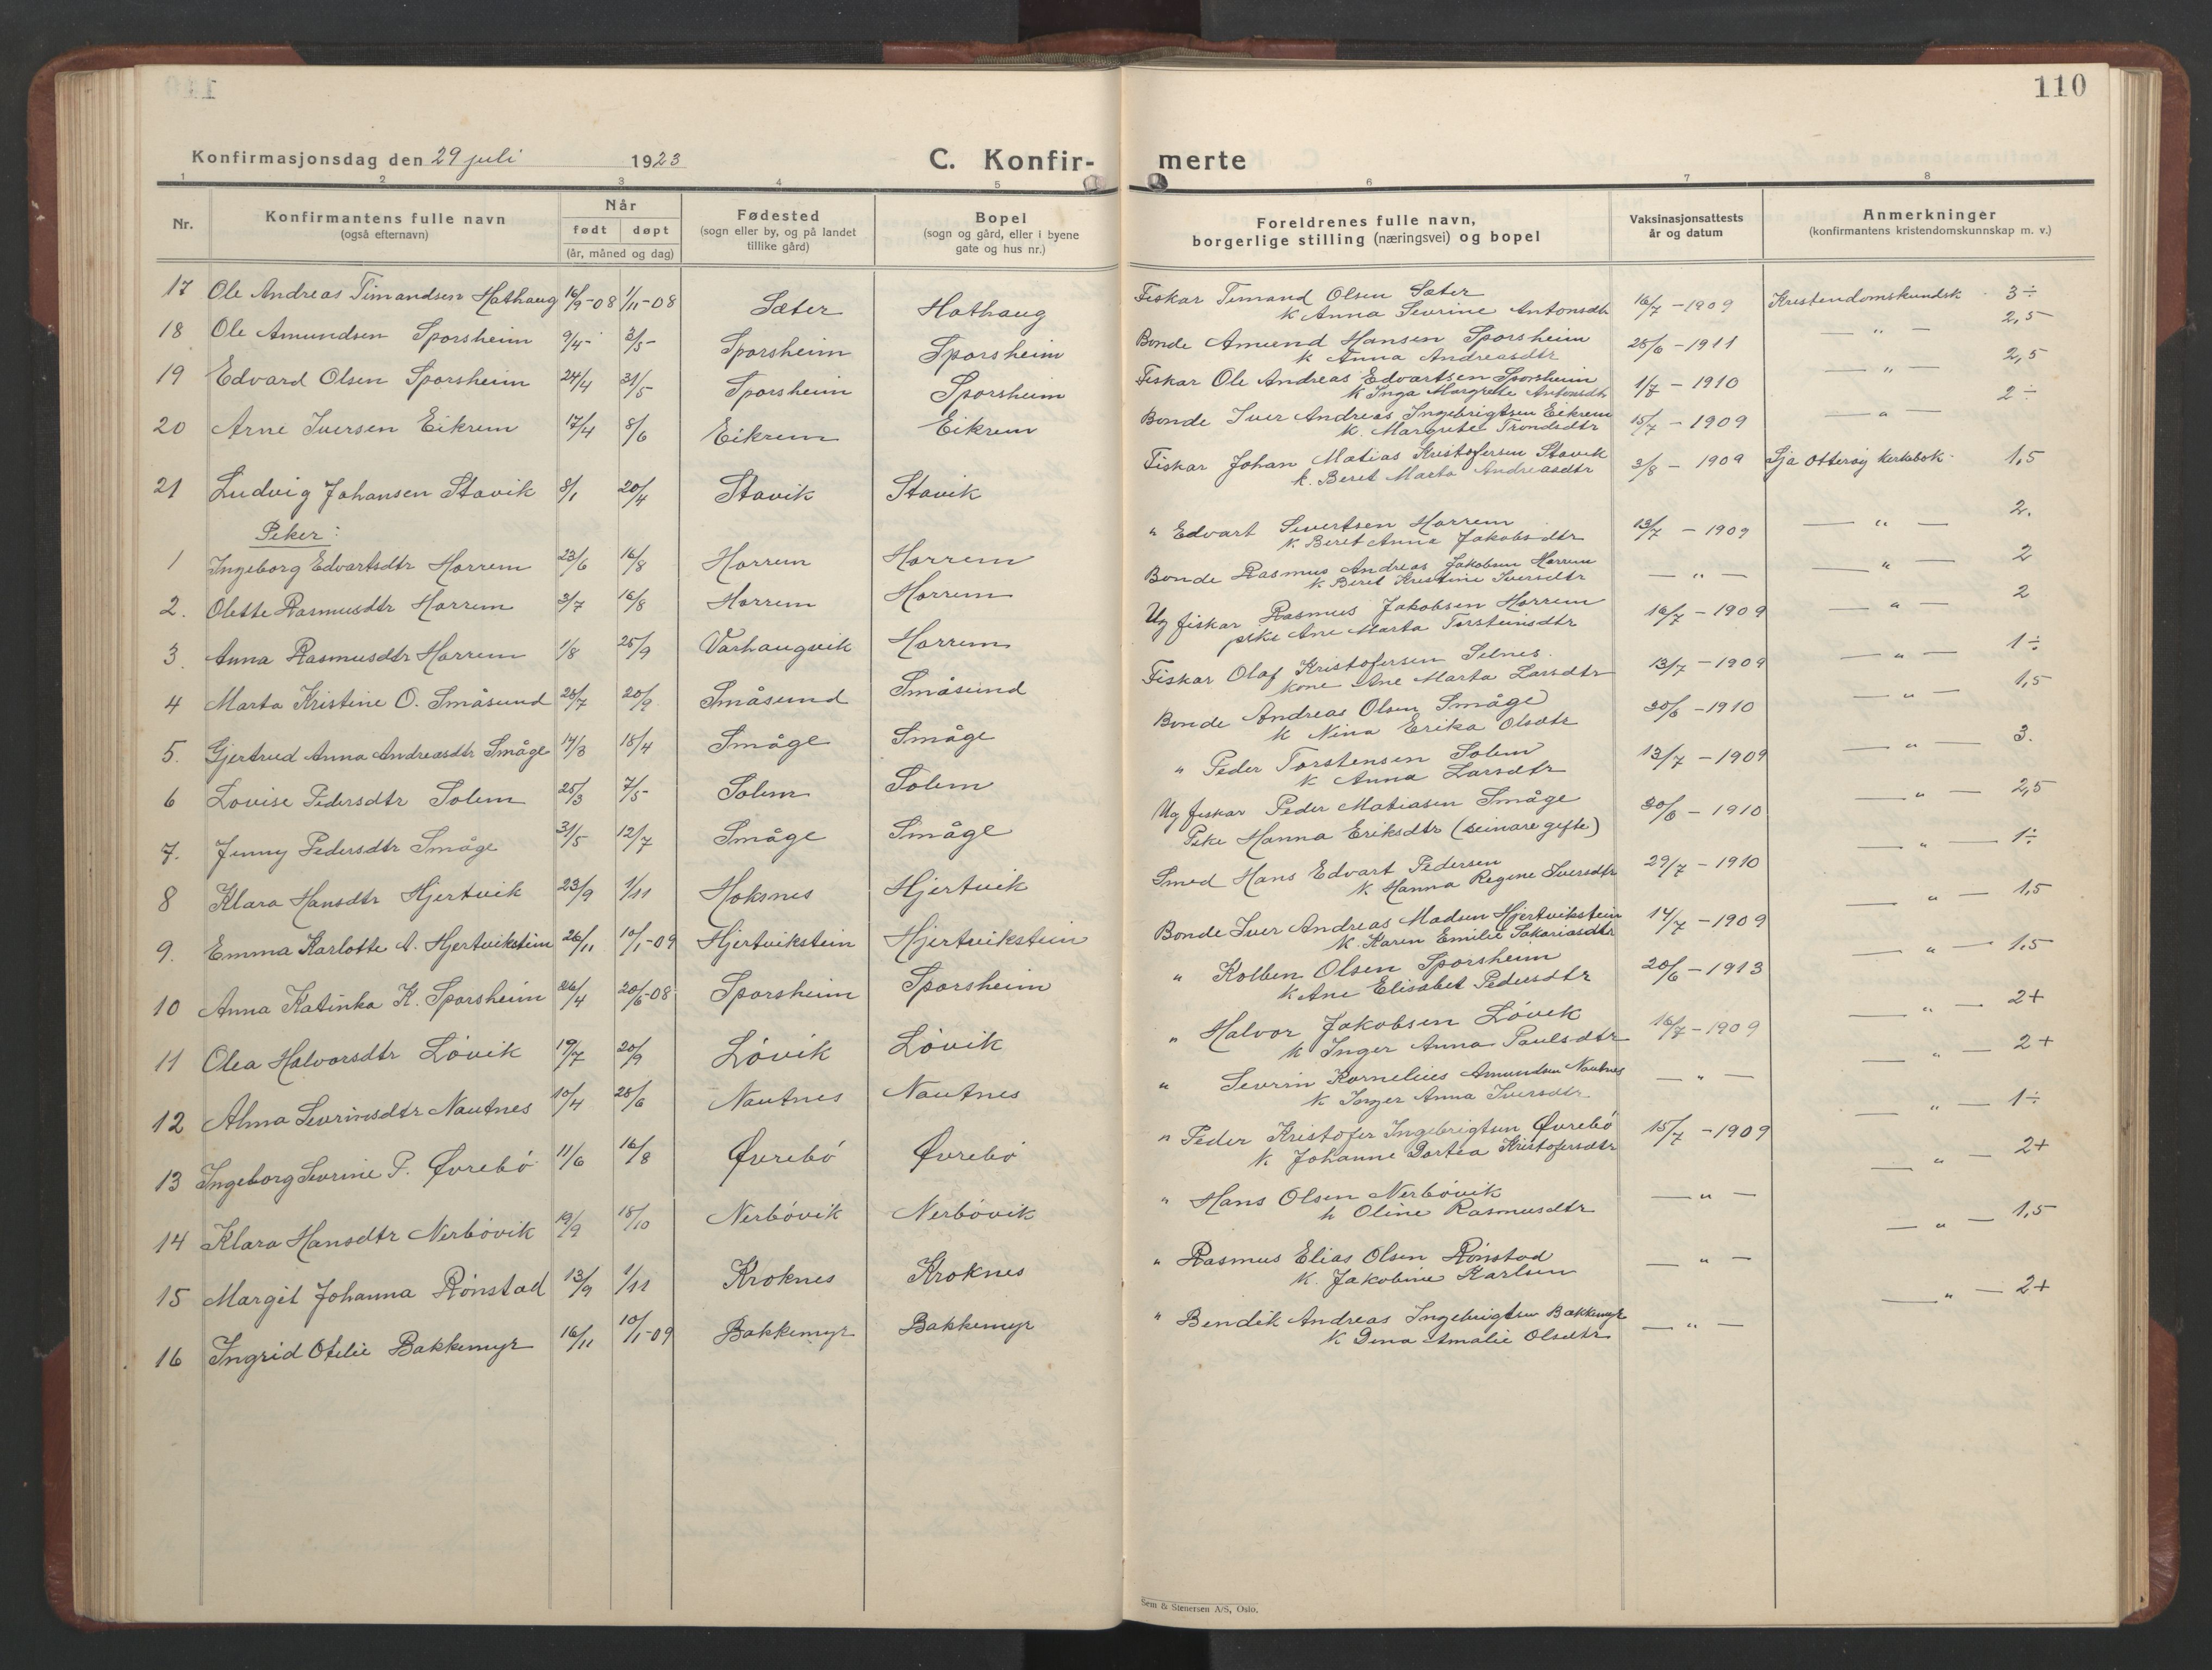 110
Konfirmasjonsdag den 29 juli 1923 C. Konfir- merte
1 2 3 4 5 6 7 8
Nr. Konfirmantens fulle navn (også efternavn) Når født døpt (år, måned og dag) Fødested (sogn eller by, og på landet tillike gård) Bopel (sogn og gård, eller i byene gate og hus nr.) Foreldrenes fulle navn, borgerlige stilling (næringsvei) og bopel Vaksinasjonsattests år og datum Anmerkninger (konfirmantens kristendomskunnskap m. v.)
17 Ole Andreas Timandsen Hathaug 16/9-08 1/11-08 Sæter Hathaug Fiskar Timand Olsen Sæter 16/7 - 1909 Kristendomskundsk. 3÷
K Anna Sevrine Antonsdtr
18 Ole Amundsen Sporsheim 9/4- 3/5- Sporsheim Sporsheim Bonde Amund Hansen Sporsheim 25/6 - 1911 — " — 2,5
K Anna Andreasdtr
19 Edvard Olsen Sporsheim 24/4 31/5 Sporsheim Sporsheim Fiskar Ole Andreas Edvartsen Sporsheim 1/7 - 1910 — " — 2,5
K Inga Margrete Antonsdtr
20 Arne Iversen Eikrem 17/4 8/6 Eikrem Eikrem Bonde Iver Andreas Ingebrigtsen Eikrem 15/7 - 1909 — " — 2÷
K. Margrete Trondsdtr
21 Ludvig Johansen Stavik 8/1 20/4 Stavik Stavik Fiskar Johan Matias Kristofersen Stavik 3/8 - 1909 Sja Otterøy kerkebok 1,5
K. Beret Marta Andreasdtr
Peker:
1 Ingeborg Edvartsdtr Horrem 23/6 16/8 Horrem Horrem " Edvart Sivertsen Horrem 13/7 - 1909 — " — 2.
K. Beret Anna Jakobsdtr
2. Olette Rasmusdtr Horrem 3/7 16/8 Horrem Horrem Bonde Rasmus Andreas Jakobsen Horrem — " — — " — 2
K Beret Kristine Iversdtr
3. Anna Rasmusdtr Horrem 1/8 25/9 Varhaugvik Horrem Ug fiskar Rasmus Jakobsen Horrem 16/7 - 1909 — " — 2
peke Ane Marta Torsteinsdtr
4 Marta Kristine O. Småsund 25/7 20/9 Småsund Småsund Fiskar Olaf Kristofersen Selnes 13/7 - 1909 — " — 1÷
Kone Ane Marta Larsdtr
5. Gjertrud Anna Andreasdtr Småge 14/3 18/4 Småge Småge Bonde Andreas Olsen Småge 30/6 - 1910 — " — 1,5
K Nina Erika Olsdtr
6 Lovise Pedersdtr Solem 25/3 7/5 Solem Solem " Peder Torstensen Solem 13/7 - 1909 — " — 3.
K Anna Larsdtr
7. Jenny Pedersdtr Småge 31/5 12/7 Småge Småge Ug fiskar Peder Matiasen Småge 30/6 - 1910 — " — 2,5
Peke Hanna Eriksdtr (seinare gifte)
8 Klara Hansdtr Hjertvik 23/9 1/11 Hoksnes Hjertvik Smed Hans Edvart Pedersen 29/7 - 1910 — " — 1÷
K. Hanna Regine Iversdtr
9. Emma Karlotte A. Hjertvikstein 26/11 10/1-09 Hjertvikstein Hjertvikstein Bonde Iver Andreas Madsen Hjertvikstein 14/7 - 1909 — " — 1,5
K. Karen Emilie Sakariasdtr
10 Anna Katinka K. Sporsheim 26/4 20/6-08 Sporsheim Sporsheim " Kolben Olsen Sporsheim 20/6 - 1913 — " — 1,5
K Ane Elisabet Pedersdtr
11 Olea Halvorsdtr Lóvik 19/7 20/9 Lóvik Lóvik " Halvor Jakobsen Lóvik 16/7 - 1909 — " — 2+
K Inger Anna Paulsdtr
12 Alma Sevrinsdtr Nautnes 10/4 28/6 Nautnes Nautnes " Sevrin Kornelius Amundsen Nautnes — " — — " — 2+
K Inger Anna Iversdtr
13 Ingeborg Sevrine P. Øvrebó 11/6 16/8 Øvrebó Øvrebó " Peder Kristofer Ingebrigtsen Øvrebó 15/7 - 1909 — " — 1÷
K. Johanne Dortea Kristofersdtr
14 Klara Hansdtr Nerbóvik 19/9 18/10 Nerbóvik Nerbóvik " Hans Olsen Nerbóvik — " — — " — 2+
K Oline Rasmusdtr
15 Margit Johanna Rónstad 13/9 1/11 Kroknes Kroknes " Rasmus Elias Olsen Rónstad — " — — " — 1,5
K. Jakobine Karlsen
16 Ingrid Otelie Bakkemyr 16/11 10/1-09 Bakkemyr Bakkemyr " Bendik Andreas Ingebrigtsen Bakkemyr — " — — " — 2+
K Dina Amalie Olsdtr
Sem & Stenersen A/S, Oslo.